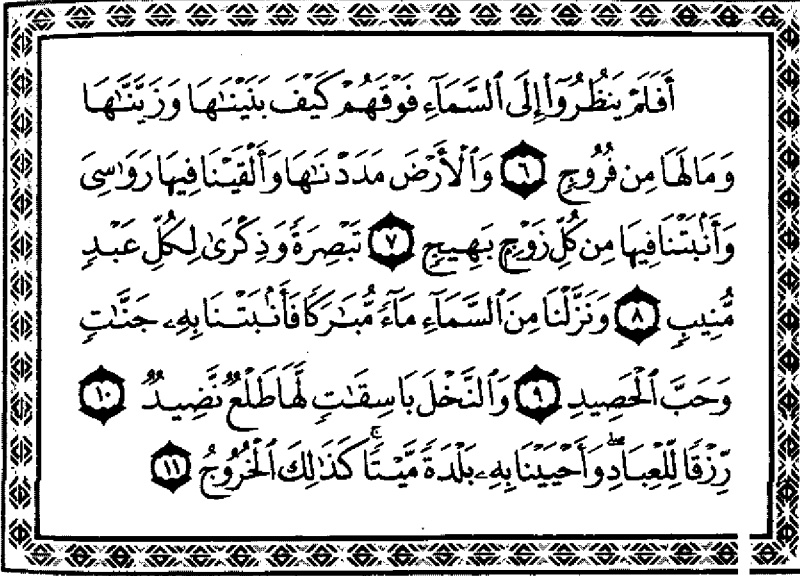 أَفَلَمْ يَنظُرُوٓا۟ إِلَى ٱلسَّمَآءِ فَوْقَهُمْ كَيْفَ بَنَيْنَٰهَا وَزَيَّنَّٰهَا
وَمَا لَهَا مِن فُرُوجٍ ٦ وَٱلْأَرْضَ مَدَدْنَٰهَا وَأَلْقَيْنَا فِيهَا رَوَٰسِىَ
وَأَنۢبَتْنَا فِيهَا مِن كُلِّ زَوْجٍۭ بَهِيجٍ ٧ تَبْصِرَةً وَذِكْرَىٰ لِكُلِّ عَبْدٍ
مُّنِيبٍ ٨ وَنَزَّلْنَا مِنَ ٱلسَّمَآءِ مَآءً مُّبَٰرَكًا فَأَنۢبَتْنَا بِهِۦ جَنَّٰتٍ
وَحَبَّ ٱلْحَصِيدِ ٩ وَٱلنَّخْلَ بَاسِقَٰتٍ لَّهَا طَلْعٌ نَّضِيدٌ ١٠
رِّزْقًا لِّلْعِبَادِ ۖ وَأَحْيَيْنَا بِهِۦ بَلْدَةً مَّيْتًا ۚ كَذَٰلِكَ ٱلْخُرُوجُ ١١